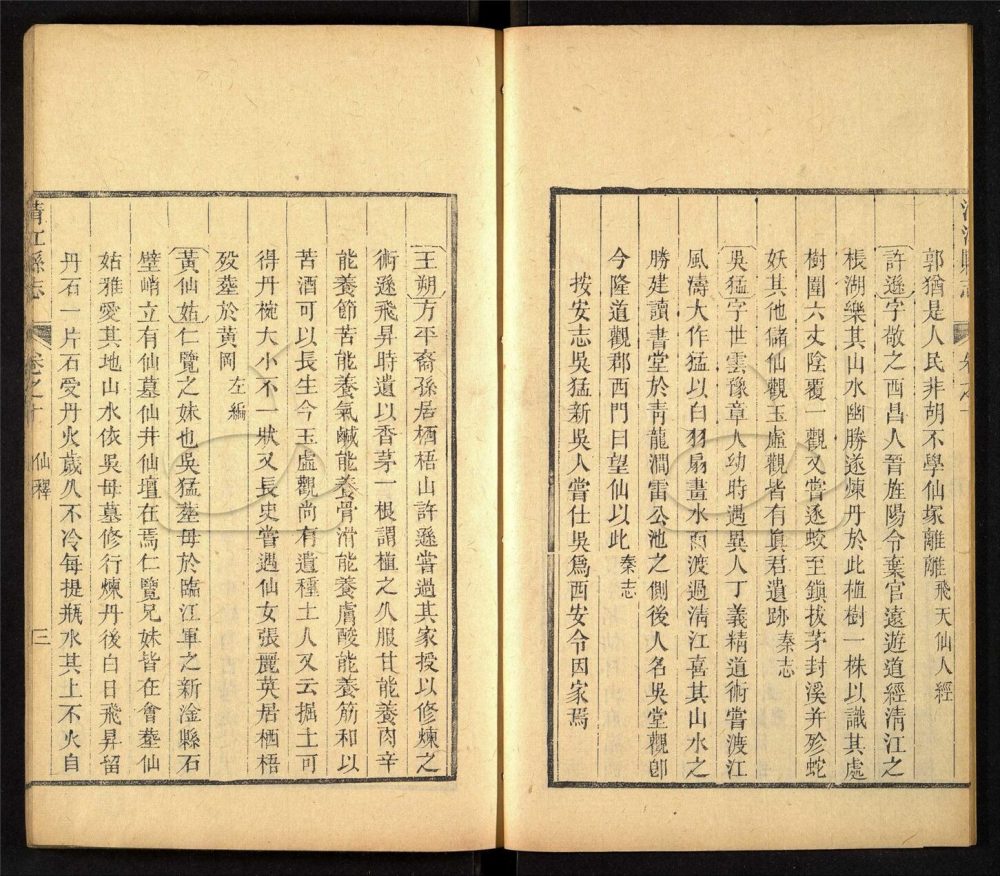 郭猶是人民非胡不學仙塚離離飛天仙人經
許遜字敬之西昌人晉旌陽令棄官遠遊道經清江之
棖湖樂其山水幽勝遂煉丹於此植樹一株以識其處
樹圍六丈陰覆一觀又嘗逐蛟至鎖拔茅封溪并殄蛇
妖其他儲仙觀玉虛觀皆有眞君遺跡秦志
吳猛字世雲豫章人幼時遇異人丁義精道術嘗渡江
風濤大作猛以白羽扇畫水而渡過清江喜其山水之
勝建讀書堂於靑龍澗雷公池之側後人名吳堂觀卽
今隆道觀郡西門曰望仙以此秦志
按安志吳猛新吳人嘗仕吳爲西安令因家焉
王朔方平裔孫居栖梧山許遜嘗過其家授以修煉之
術遜飛昇時遺以香茅一根謂植之久服甘能養肉辛
能養節苦能養氣鹹能養骨滑能養膚酸能養筋和以
苦酒可以長生今玉虛觀尚有遺種土人又云掘土可
得丹椀大小不一狀又長史嘗遇仙女張麗英居栖梧
歿葬於黃岡左編
黃仙姑仁覽之妹也吳猛葬母於臨江軍之新淦縣石
壁峭立有仙墓仙井仙壇在焉仁覽兄妹皆在會葬仙
姑雅愛其地山水依吳母墓修行煉丹後白日飛昇留
丹石一片石受丹火歲久不冷每提瓶水其上不火自
清江縣志 卷之十 仙釋 三